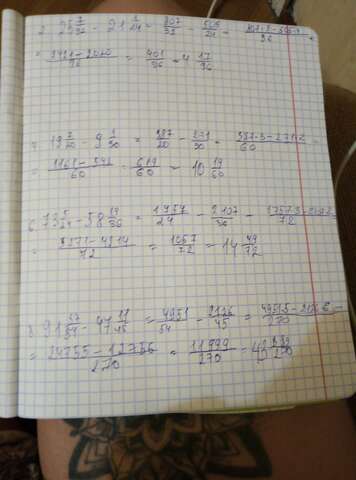 2. 25 7/32 - 21 1/24 = 807/32 - 505/24 = 807·3-505·4/96
= 2421-2020/96 = 401/96 = 4 17/96
19 7/20 - 9 1/30 = 387/20 - 271/30 = 387·3-271·2/60 =
= 1161-542/60 = 619/60 = 10 19/60
6. 73 5/24 - 58 19/36 = 1757/24 - 2107/36 = 1757·3-2107·2/72 =
= 5271-4214/72 = 1057/72 = 14 49/72
8. 91 37/54 - 47 11/45 = 4951/54 - 2126/45 = 4951·5-2126·6/270 =
= 24755-12756/270 = 11999/270 =